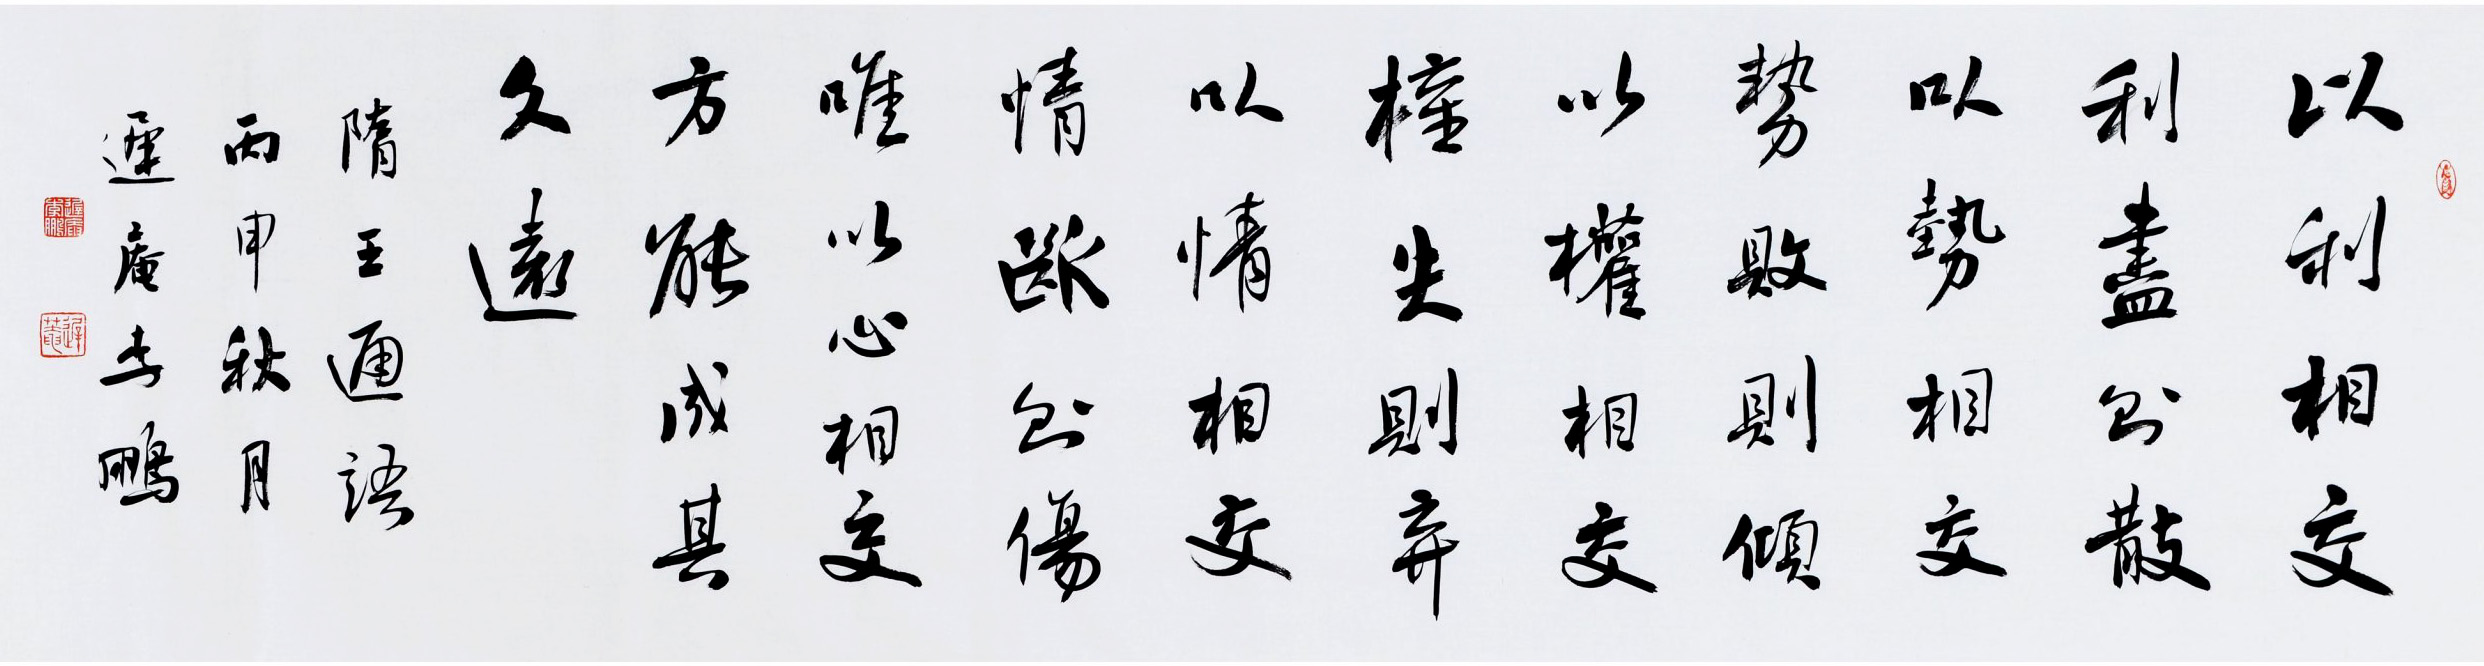 以利相交
利盡則散
以勢相交
勢敗則傾
以權相交
權失則弃
以情相交
情斷則傷
唯以心相交
方能成其
久遠
隋王通語
丙申秋月
遲庵李鵬